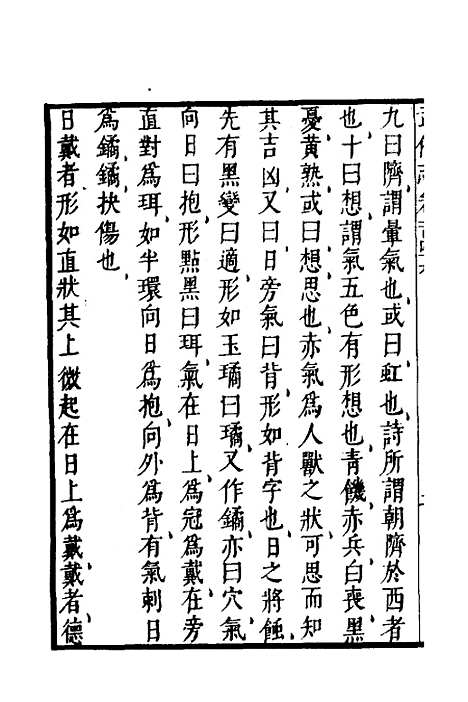 九曰隮謂暈氣也或曰虹也詩所謂朝隮於西者
也十曰想謂氣五色有形想也青饑赤兵白喪黑
憂黄熟或曰想思也赤氣爲人獸之狀可思而知
其吉凶又曰日旁氣曰背形如背字也日之將蝕
先有黑變曰適形如玉璚曰璚又作鐍亦曰穴氣
向日曰抱形點黑曰珥氣在日上爲冠爲戴在旁
直對爲珥如半環向日爲抱向外爲背有氣刺日
爲鐍鐍抉傷也
日戴者形如直狀其上微起在日上爲戴戴者德